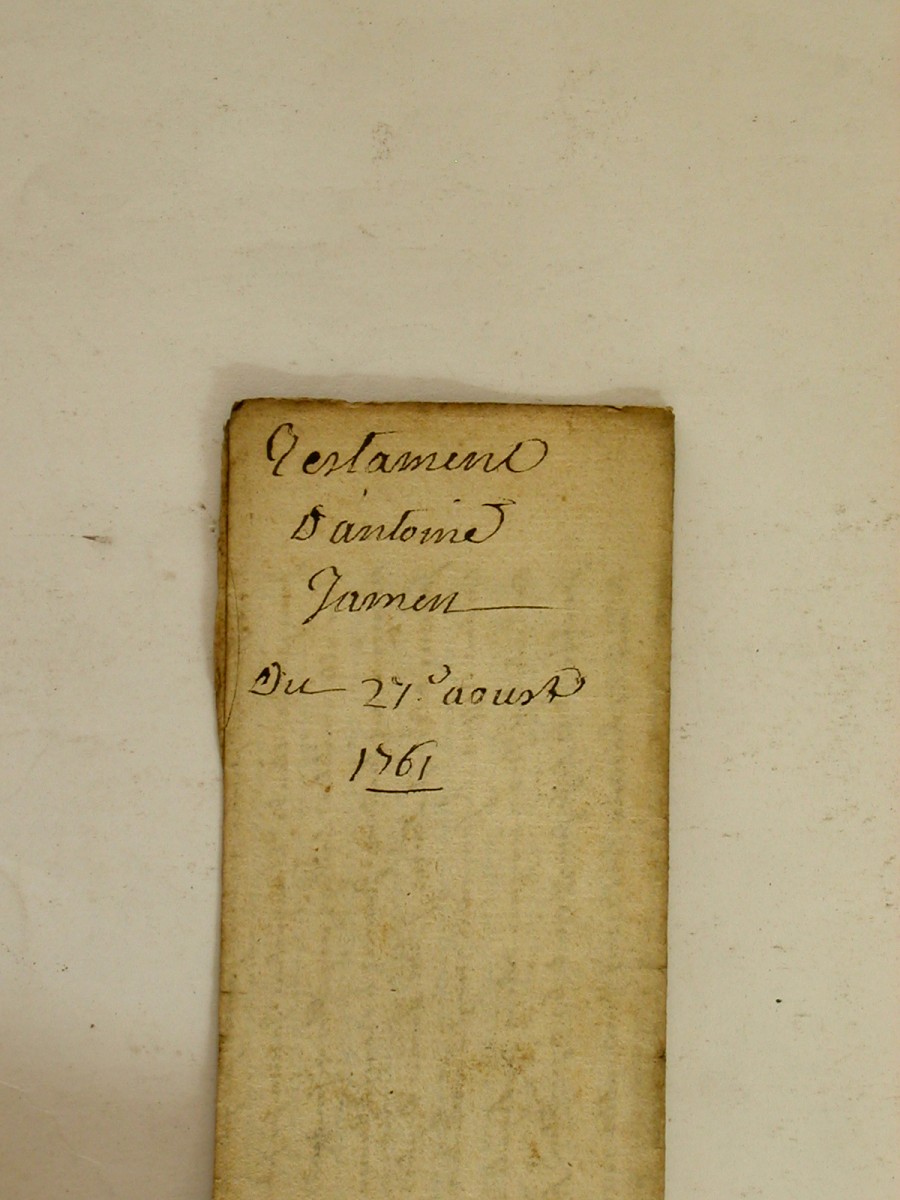 Testament
D'antoine
Jamen
Du 27.e aoust
1761